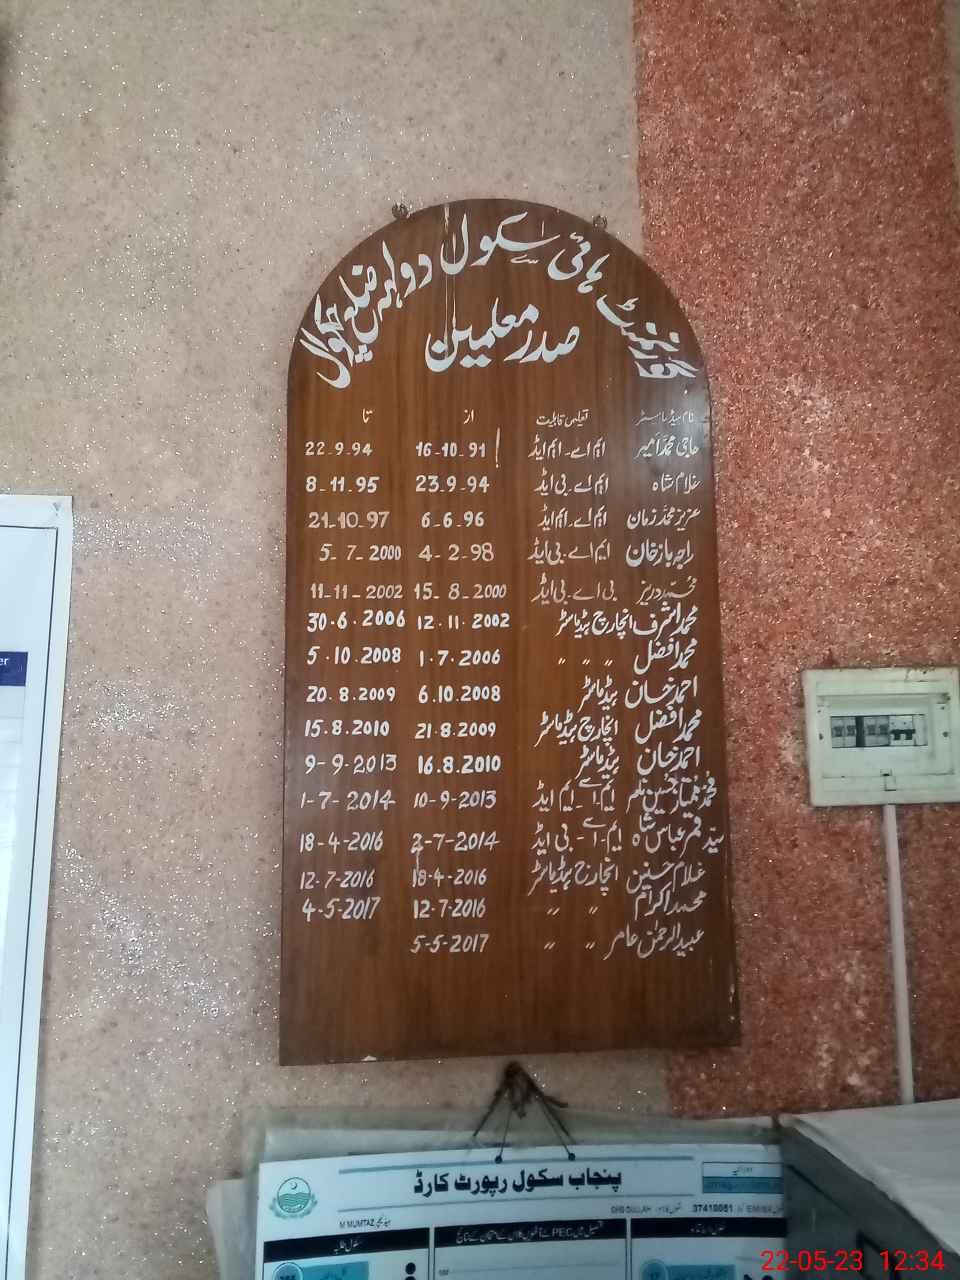 گورنمنٹ ہائی سکول دولہہ ضلع چکوال
صدر معلمین
نام ہیڈ ماسٹر تعلیمی قابلیت از تا
حاجی محمد امیر ایم اے۔ ایم ایڈ 16-10-91 22-9-94
غلام شاہ ایم اے۔ بی ایڈ 23-9-94 8-11-95
عزیز محمد زمان ایم اے۔ ایم ایڈ 6-6-96 21-10-97
راجہ باز خان ایم اے۔ بی ایڈ 4-2-98 5-7-2000
محمد پرویز بی اے۔ بی ایڈ 15-8-2000 11-11-2002
محمد اشرف انچارج ہیڈ ماسٹر 12.11.2002 30.6.2006
محمد افضل 〃 〃 〃 1.7.2006 5.10.2008
احمد خان ہیڈ ماسٹر 6.10.2008 20.8.2009
محمد افضل انچارج ہیڈ ماسٹر 21.8.2009 15.8.2010
احمد خان ہیڈ ماسٹر 16.8.2010 9-9-2013
محمد ممتاز حسین ایم۔اے۔ ایم ایڈ 10-9-2013 1-7-2014
سید قمر عباس شاہ ایم۔اے۔ بی ایڈ 2-7-2014 18-4-2016
غلام حسنین انچارج ہیڈ ماسٹر 18-4-2016 12-7-2016
محمد اکرام 〃 〃 12-7-2016 4-5-2017
عبید الرحمٰن عامر 〃 〃 5-5-2017
پنجاب سکول رپورٹ کارڈ
37410051 EMIS
GHS DULLAH
M MUMTAZ
22-05-23 12:34